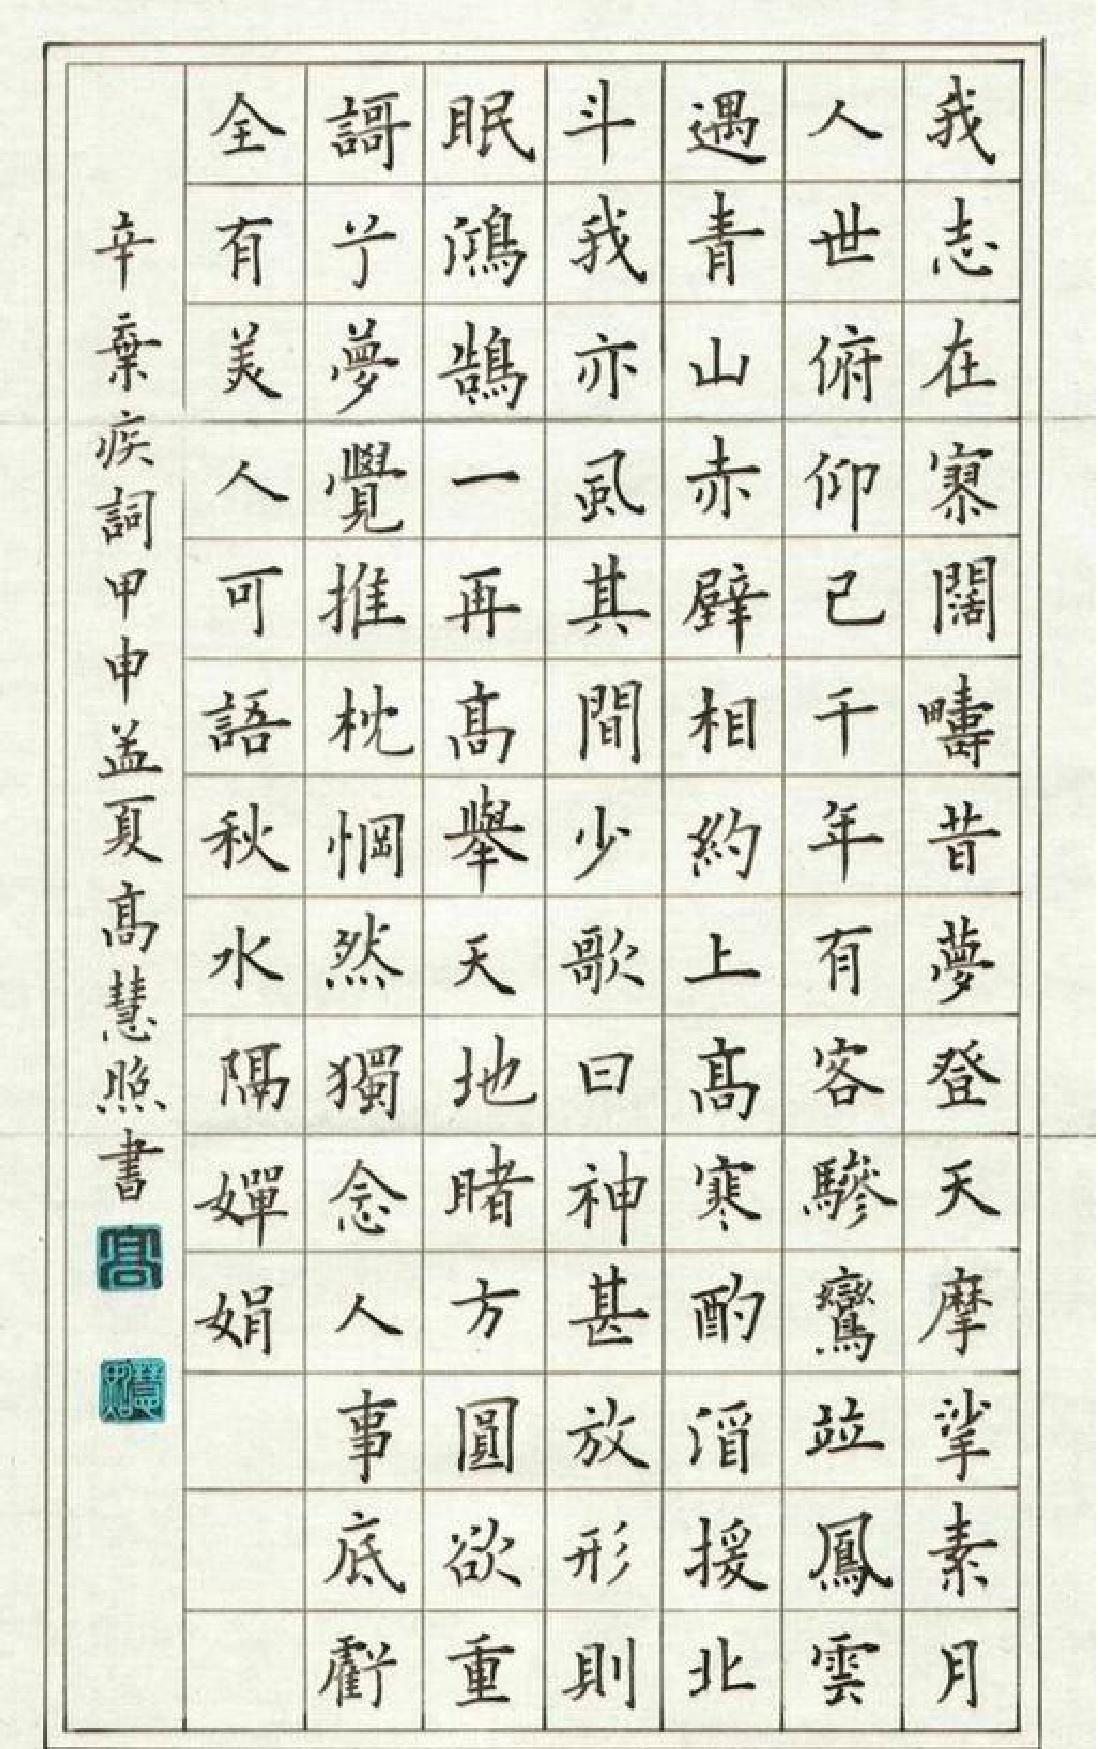 我志在寥闊疇昔夢登天摩挲素月
人世俯仰已千年有客驂鸞竝鳳雲
遇青山赤壁相約上高寒酌酒援北
斗我亦虱其間少歌曰神甚放形則
眠鴻鵠一再高舉天地睹方圓欲重
謌兮夢覺推枕惘然獨念人事底虧
全有美人可語秋水隔嬋娟
辛棄疾詞甲申孟夏高慧照書
高
慧照